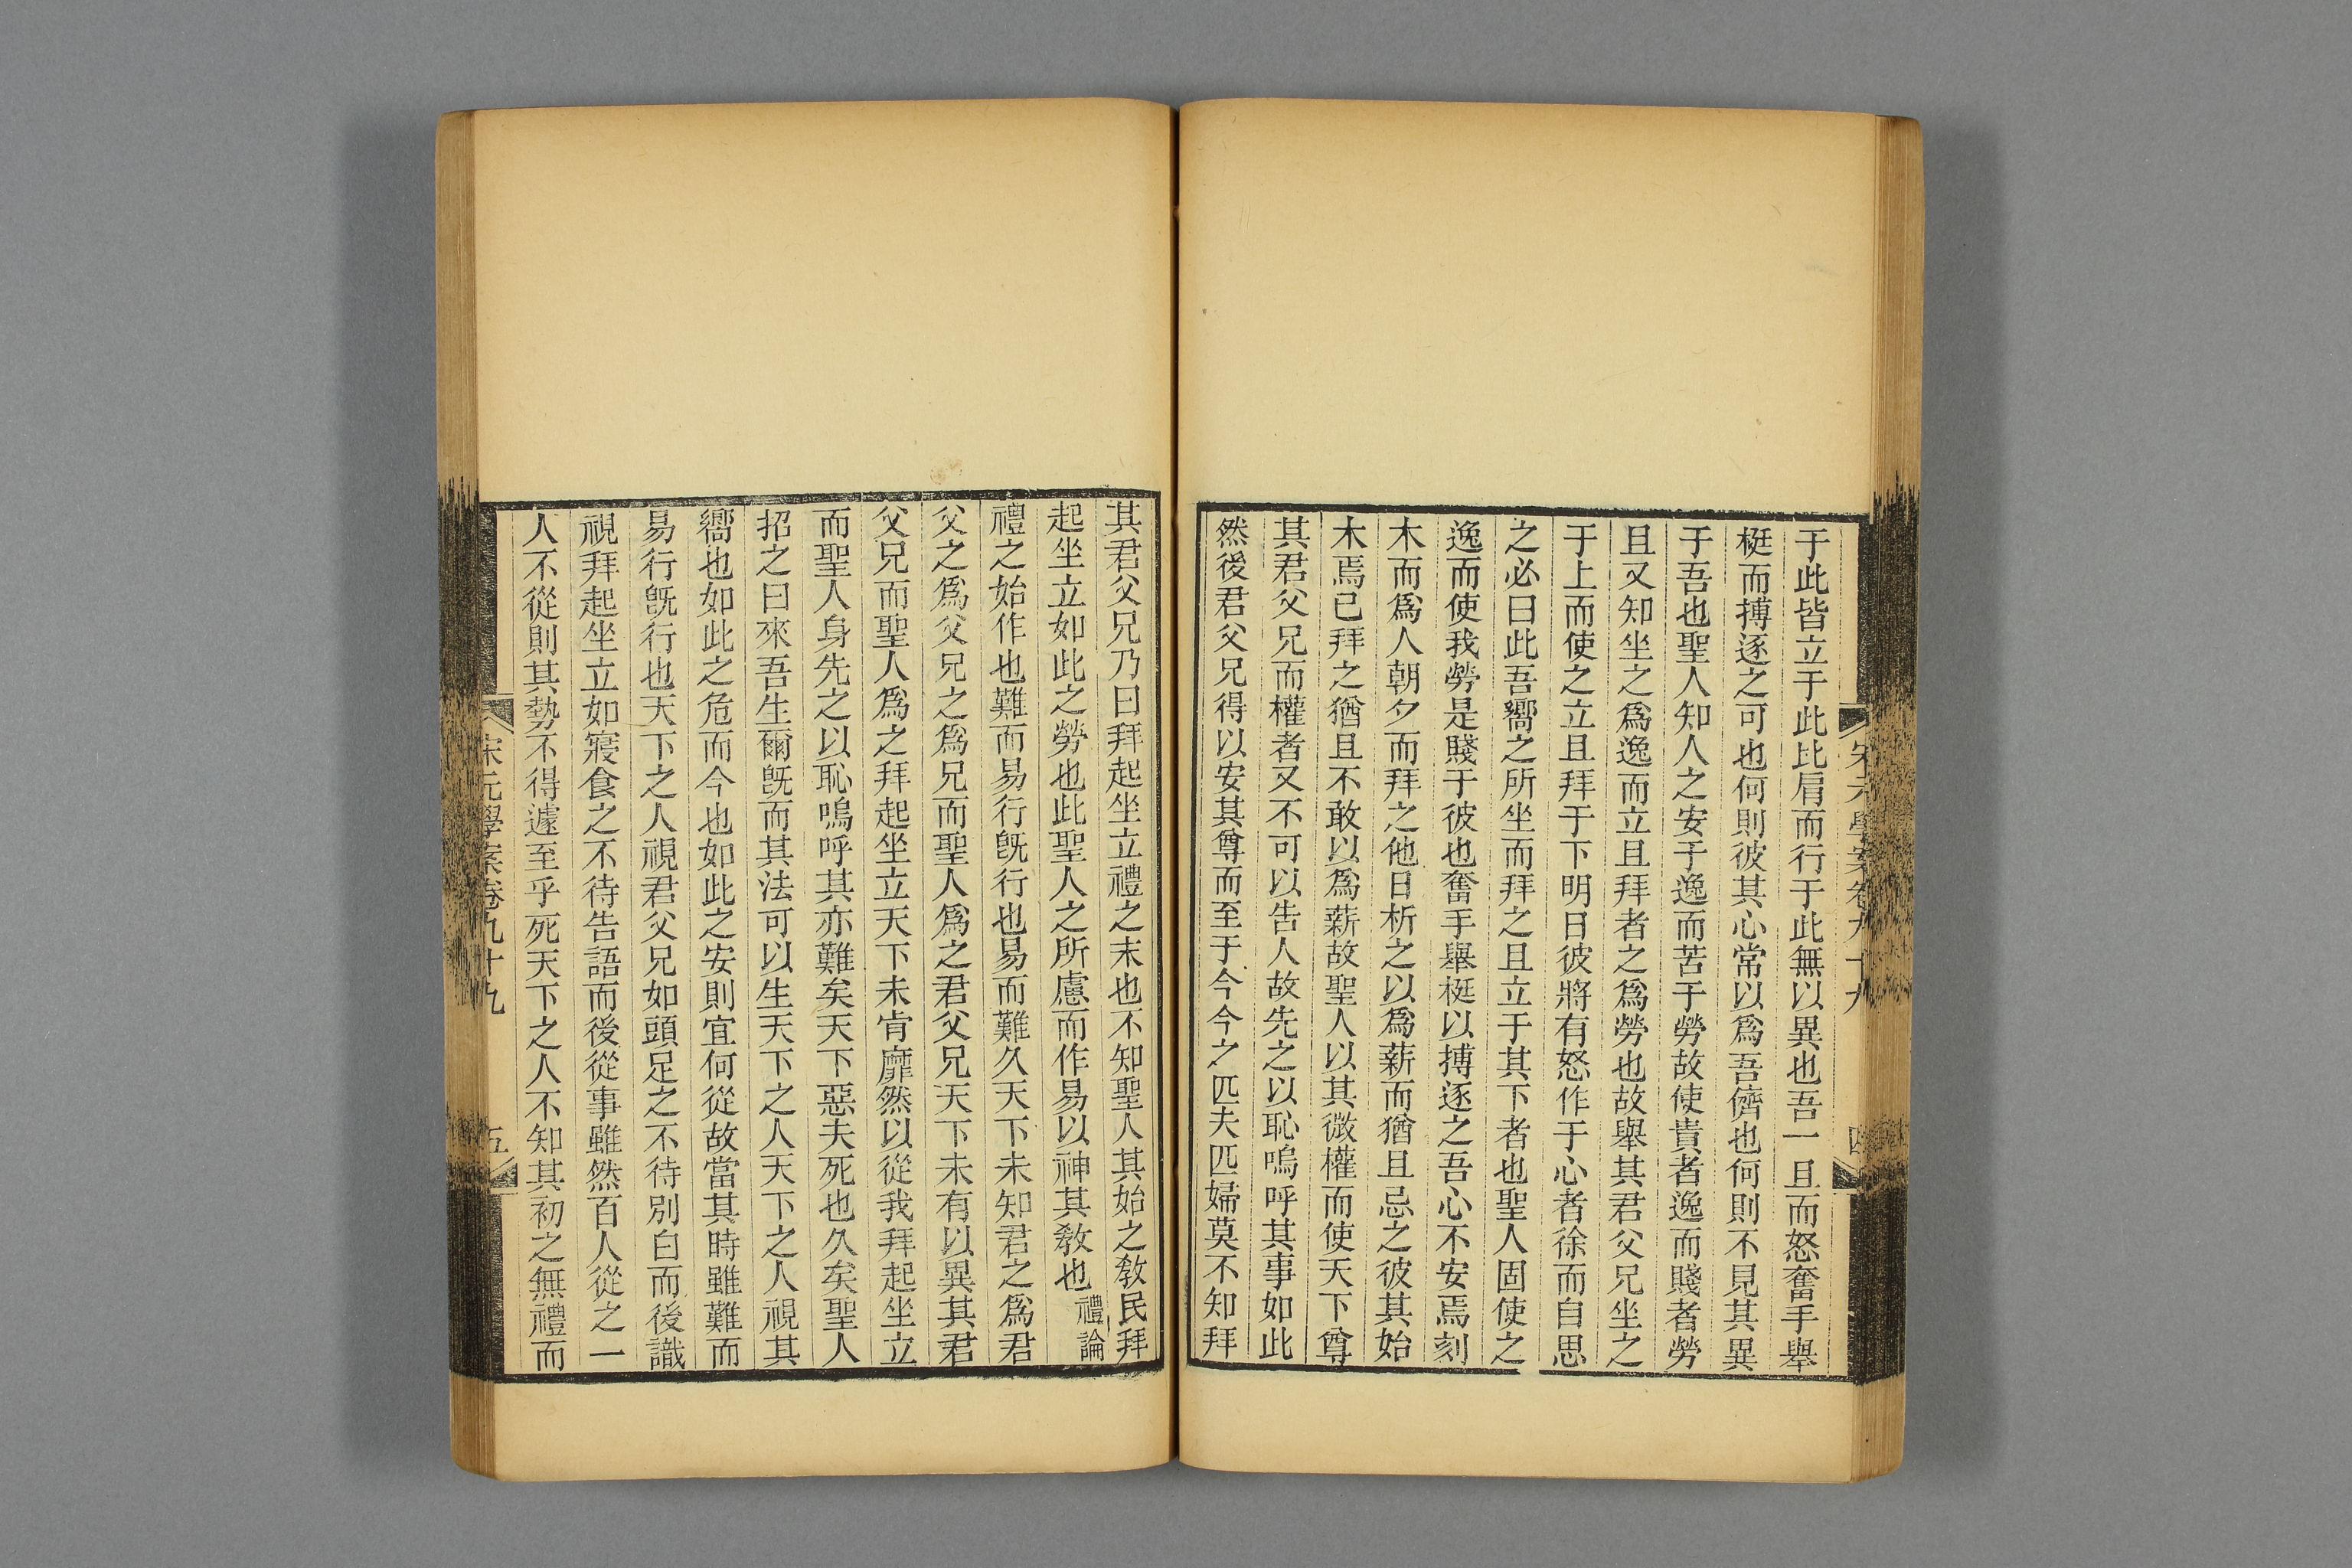 于此皆立于此比肩而行于此無以異也吾一旦而怒奮手舉
梃而搏逐之可也何則彼其心常以爲吾儕也何則不見其異
于吾也聖人知人之安于逸而苦于勞故使貴者逸而賤者勞
且又知坐之爲逸而立且拜者之爲勞也故舉其君父兄坐之
于上而使之立且拜于下明日彼將有怒作于心者徐而自思
之必曰此吾嚮之所坐而拜之且立于其下者也聖人固使之
逸而使我勞是賤于彼也奮手舉梃以搏逐之吾心不安焉刻
木而爲人朝夕而拜之他日析之以爲薪而猶且忌之彼其始
木焉已拜之猶且不敢以爲薪故聖人以其微權而使天下尊
其君父兄而權者又不可以告人故先之以恥嗚呼其事如此
然後君父兄得以安其尊而至于今今之匹夫匹婦莫不知拜
宋元學案卷九十九
四
其君父兄乃曰拜起坐立禮之末也不知聖人其始之敎民拜
起坐立如此之勞也此聖人之所慮而作易以神其敎也禮論
禮之始作也難而易行旣行也易而難久天下未知君之爲君
父之爲父兄之爲兄而聖人爲之君父兄天下未有以異其君
父兄而聖人爲之拜起坐立天下未肯靡然以從我拜起坐立
而聖人身先之以恥嗚呼其亦難矣天下惡夫死也久矣聖人
招之曰來吾生爾旣而其法可以生天下之人天下之人視其
嚮也如此之危而今也如此之安則宜何從故當其時雖難而
易行旣行也天下之人視君父兄如頭足之不待別白而後識
視拜起坐立如寢食之不待告語而後從事雖然百人從之一
人不從則其勢不得遽至乎死天下之人不知其初之無禮而
宋元學案卷九十九
五